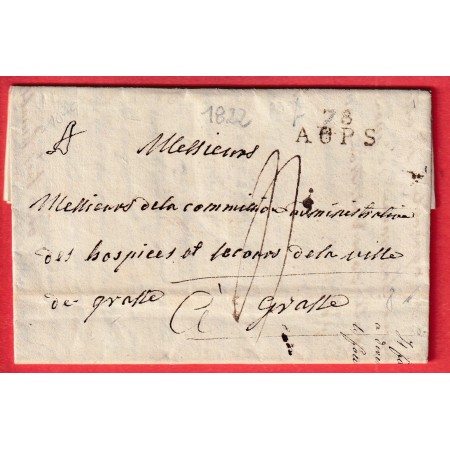 1822
78
AUPS
A Messieurs
Messieurs de la commission administrative
des hospices et secours de la ville
de grasse à Grasse